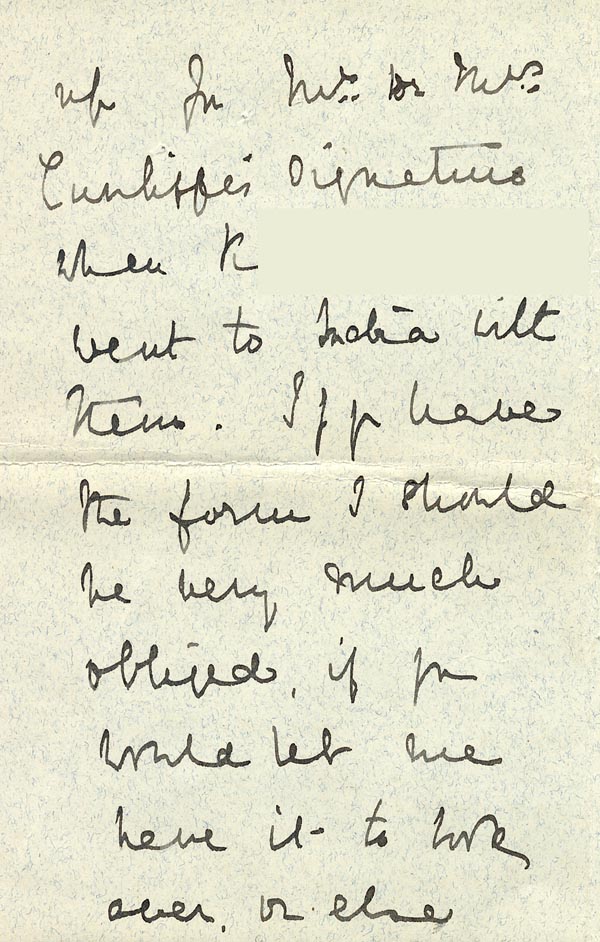 up for Mr. or Mrs.
Cunliffe's Signature
when K
went to India with
them. If yr have
the form I should
be very much
obliged, if you
would let me
have it to look
over, or else